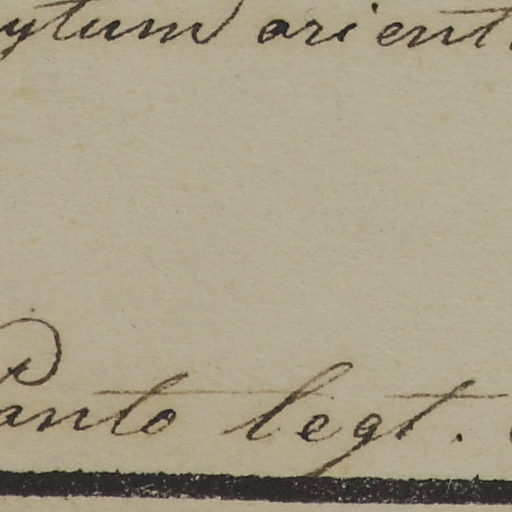 ytum orient
Panto legt.